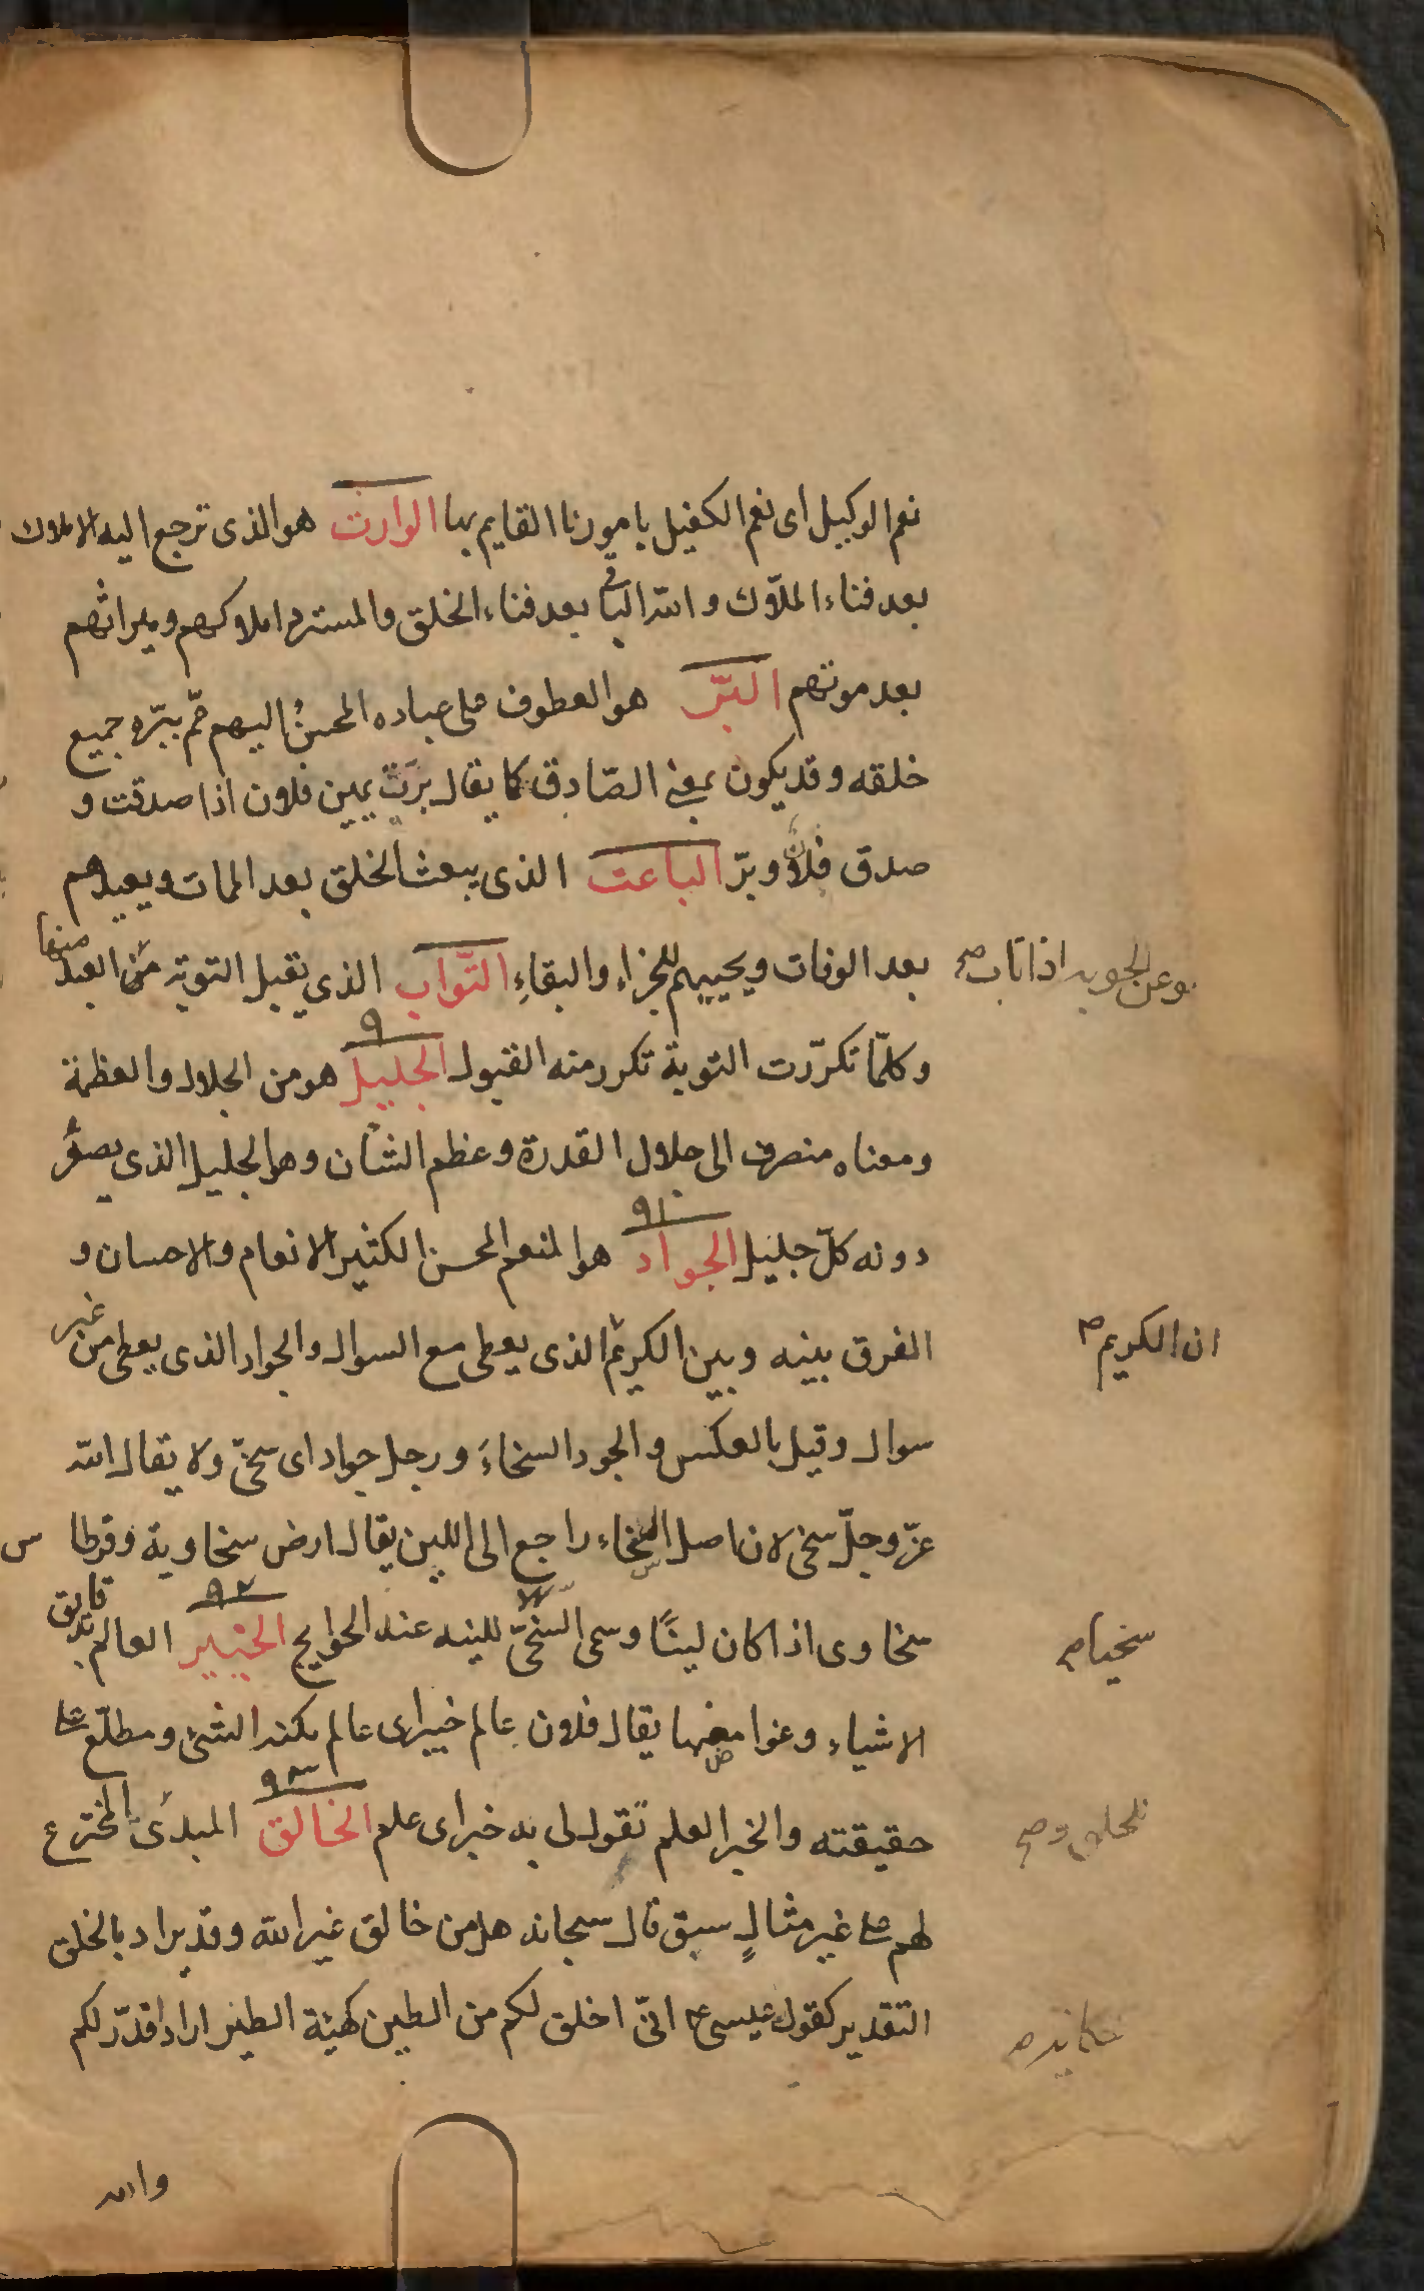 نعم الوكيل اى نعم الكفيل بامورنا القايم بها الوارث هو الذى ترجع اليه الاملاك
بعد فناء الملّاك والله الباقى بعد فناء الخلق والمسترد املاكهم وميراثهم
بعد موتهم البرّ هو العطوف على عباده المحسنُ اليهم عمّ ببرّه جميع
خلقه وقد يكون بمعنى الصّادق كما يقال برّت يمين فلان اذا صدقت و
صدق فلان وبرّ الباعث الذى يبعث الخلق بعد الممات ويعيدهم
بعد الوفات ويحييهم للجزاء والبقاءِ التّواب الذى يقبل التوبة من العبد
وعن الحوبه اذا تاب صح
منها
وكلّما تكرّرت التوبة تكرر منه القبول الجليل ٩ هو من الجلال والعظمة
ومعناه منصرف الى جلال القدرة وعظم الشأن وهو الجليل الذى يصغر
دونه كلّ جليل الجواد ٩١ هو المنعم المحسن الكثير الانعام والاحسان و
الفرق بينه وبين الكريم الذى يعطى مع السوال والجواد الذى يعطى من غير
ان الكريم صح
سوال وقيل بالعكس والجود السخاءَ ورجل جواد اى سخىّ ولا يقال الله
عزّ وجلّ سخى لان اصل السخاء راجع الى اللين يقال ارض سخاوية وقرطاس
سخاوى اذا كان لينًا وسمى السّخىّ للينه عند الحوايج الخبير ٩٢ العالم بدقايق
سخيا صح
الاشياء وغوامضها يقال فلان عالم خبير اى عالم بكنه الشئ ومطلّع على
حقيقته والخبر العلم تقول لى به خبر اى علم الخالق ٩٣ المبدئ المخترع
للخلق صح
لهم على غير مثالٍ سبق قال سبحانه هل من خالق غير الله وقد يراد بالخلق
التقدير كقول عيسى ع انّى اخلق لكم من الطين كهيئة الطير اراد اقدّر لكم
والله